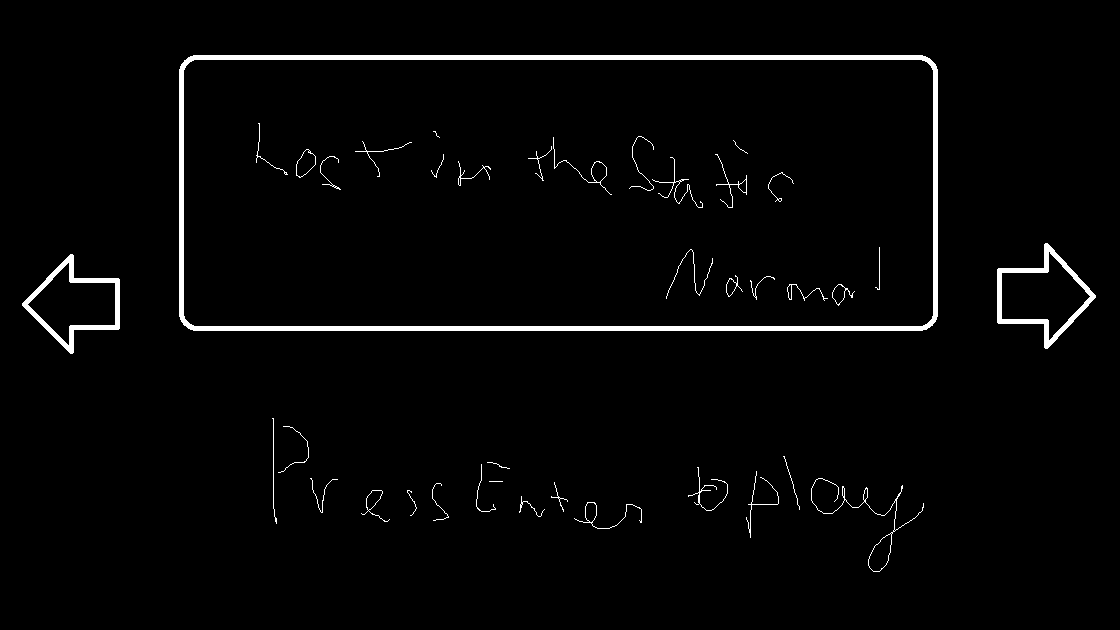 Lost in the Static
Normal
Press Enter to play